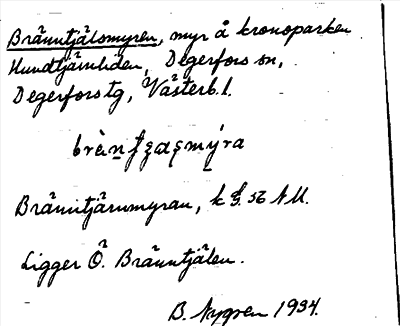 Bränntjälsmyren, myr å kronoparken
Hundtjärnliden, Degerfors sn,
Degerfors tg, Västerb. l.
Bränntjärnmyran, k
Ligger Ö. Bränntjälen.
B. Nygren 1934.